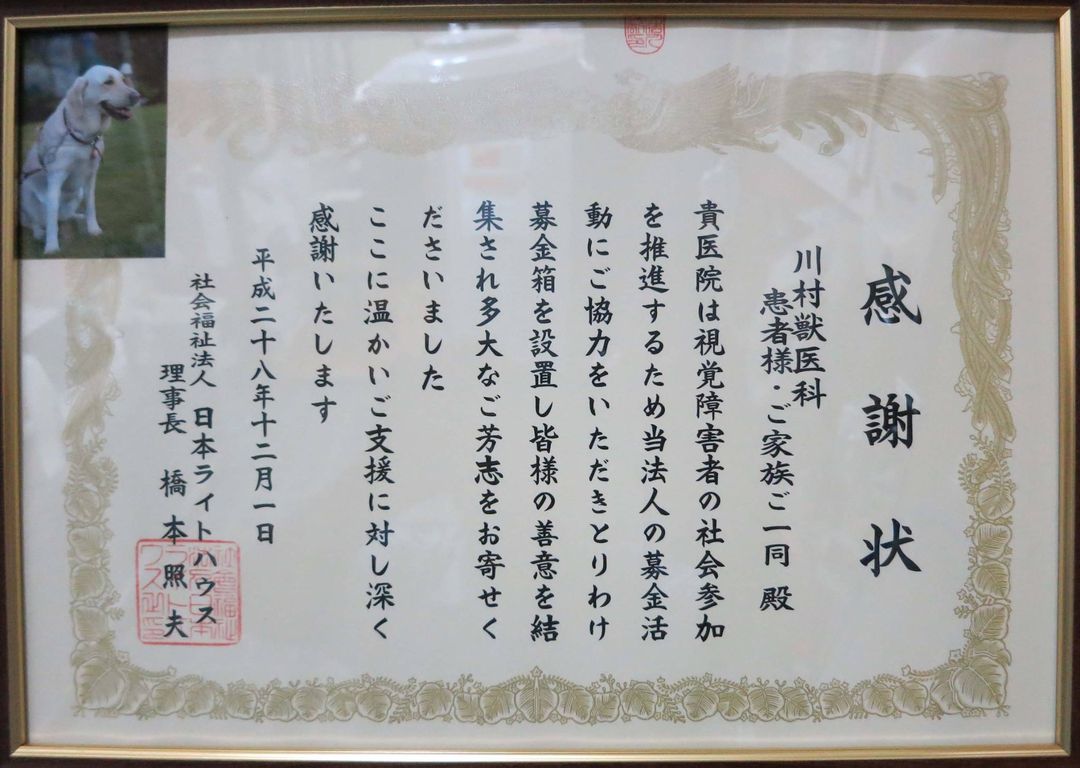 感謝状
川村獣医科
患者様・ご家族ご一同 殿
貴医院は視覚障害者の社会参加
を推進するため当法人の募金活
動にご協力をいただきとりわけ
募金箱を設置し皆様の善意を結
集され多大なご芳志をお寄せく
ださいました
ここに温かいご支援に対し深く
感謝いたします
平成二十八年十二月一日
社会福祉法人 日本ライトハウス
理事長 橋本照夫